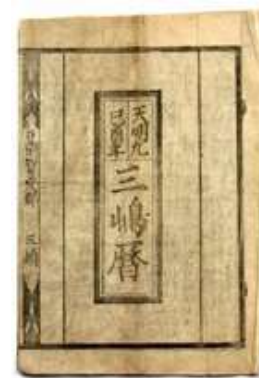 天明九
己酉年
三嶋暦
三嶋